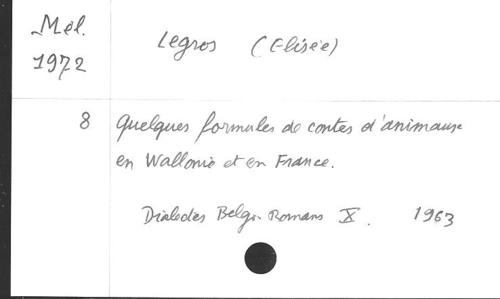 Mél.
1972
Legros (Elisée)
8 Quelques formules de contes d'animaux
en Wallonie et en France.
Dialectes Belgo-Romans X. 1963